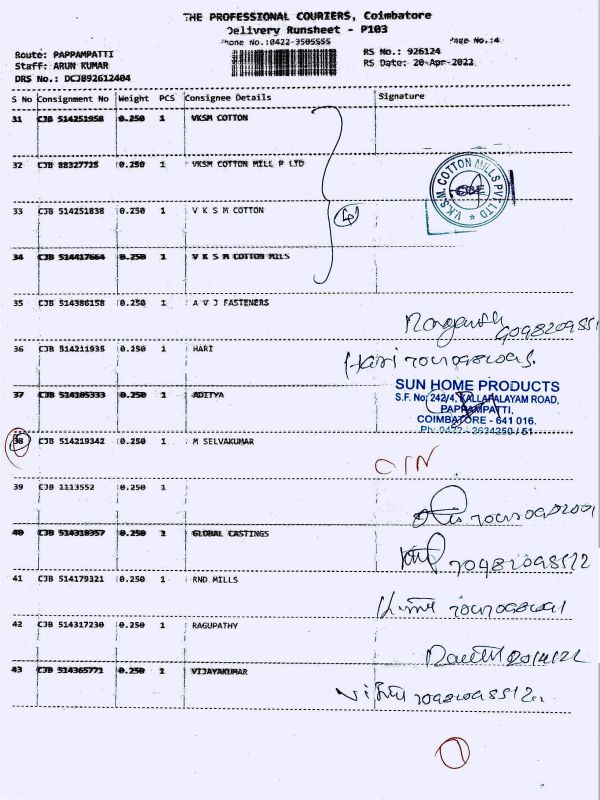 THE PROFESSIONAL COURIERS, Coimbatore
Delivery Runsheet - P103
Phone No.:0422-3505555
Page No.:4
Route: PAPPAMPATTI
RS No.: 926124
Staff: ARUN KUMAR
RS Date: 20-Apr-2022
DRS No.: DCJB92612404
S No Consignment No Weight PCS Consignee Details Signature
31 CJB 514251958 0.250 1 VKSM COTTON
32 CJB 88327725 0.250 1 VKSM COTTON MILL P LTD
V.K.S.M. COTTON MILLS PVT LTD
CBE
33 CJB 514251838 0.250 1 V K S M COTTON
4
34 CJB 514417664 0.250 1 V K S M COTTON MILS
35 CJB 514386158 0.250 1 A V J FASTENERS
36 CJB 514211935 0.250 1 HARI
Hari
SUN HOME PRODUCTS
S.F. No: 242/4, KALLAPALAYAM ROAD,
37 CJB 514105333 0.250 1 ADITYA
PAPPAMPATTI,
COIMBATORE - 641 016.
Ph: 0422 - 2634250 / 51
38 CJB 514219342 0.250 1 M SELVAKUMAR
39 CJB 1113552 0.250 1
40 CJB 514318357 0.250 1 GLOBAL CASTINGS
41 CJB 514179321 0.250 1 RND MILLS
42 CJB 514317230 0.250 1 RAGUPATHY
43 CJB 514365771 0.250 1 VIJAYAKUMAR